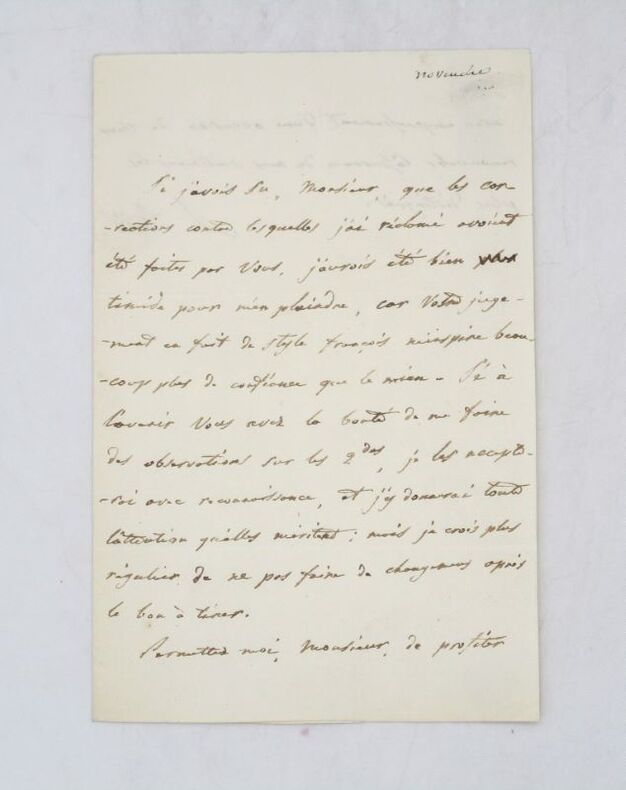 novembre
Si j'avois su, Monsieur que les cor-
-rections contre lesquelles j'ai réclamé avoient
été faites par Vous, j'aurois été bien
timide pour m'en plaindre, car Votre juge-
-ment en fait de style françois m'inspire beau-
-coup plus de confiance que le mien. Si à
l'avenir Vous avez la bonté de me faire
des observations sur les 2des, je les accepte-
-rai avec reconnoissance, et j'y donnerai toute
l'attention qu'elles méritent; mais je crois plus
régulier de ne pas faire de changemens après
le bon à tirer.
Permettez moi, Monsieur, de profiter